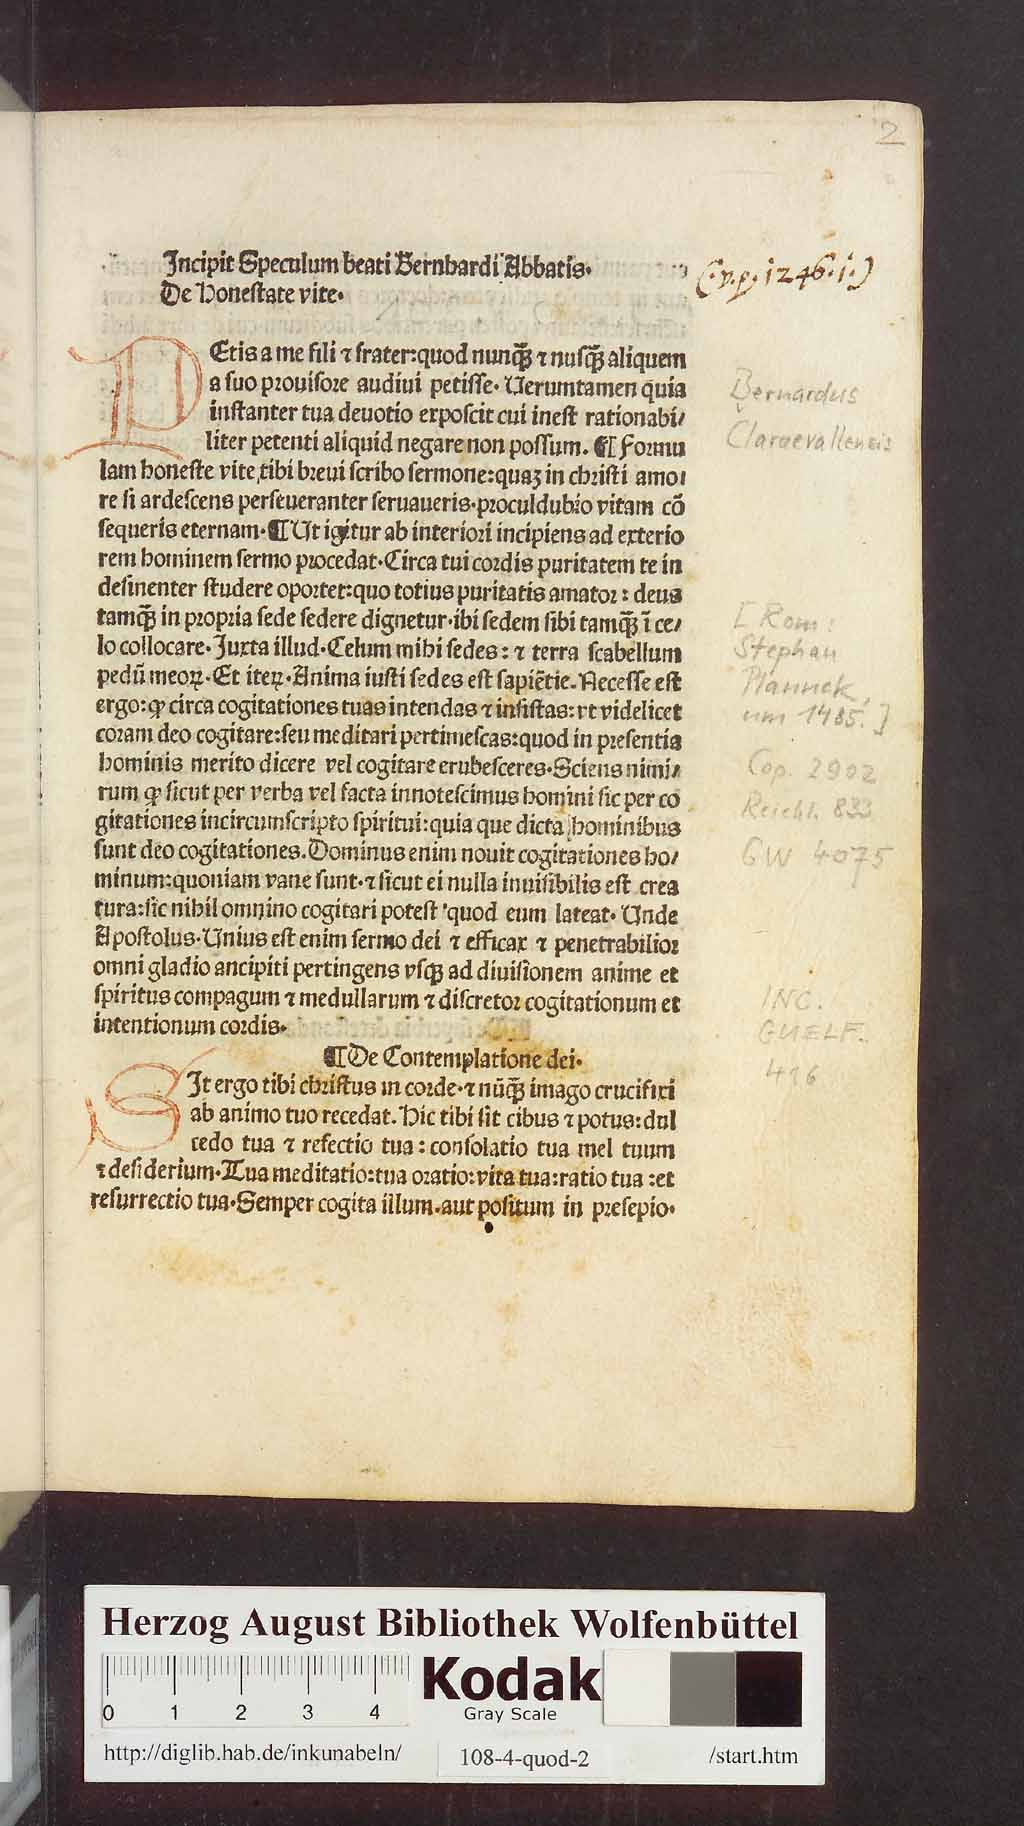 2
Incipit Speculum beati Bernhardi Abbatis.
De honestate vite.
(.v.p.1246.i.)
PEtis a me fili ⁊ frater:quod nunq̃ ⁊ nusq̃ aliquem
a suo prouisore audiui petisse. Uerumtamen quia
instanter tua deuotio exposcit cui inest rationabi/
liter petenti aliquid negare non possum. ¶ Formu
lam honeste vite tibi breui scribo sermone:quaʒ in christi amo/
re si ardescens perseueranter seruaueris.proculdubio vitam cō
sequeris eternam.¶Ut igitur ab interiori incipiens ad exterio
rem hominem sermo procedat.Circa tui cordis puritatem te in
desinenter studere oportet:quo totius puritatis amator: deus
tamq̃ in propria sede sedere dignetur.ibi sedem sibi tamq̃ ī ce/
lo collocare. Juxta illud.Celum mihi sedes: ⁊ terra scabellum
pedū meoꝝ.Et iteꝝ.Anima iusti sedes est sapiētie.Necesse est
ergo:ꝙ circa cogitationes tuas intendas ⁊ insistas:vt videlicet
coram deo cogitare:seu meditari pertimescas:quod in presentia
hominis merito dicere vel cogitare erubesceres.Sciens nimi/
rum ꝙ sicut per verba vel facta innotescimus homini sic per co
gitationes incircumscripto spiritui:quia que dicta hominibus
sunt deo cogitationes.Dominus enim nouit cogitationes ho/
minum:quoniam vane sunt.⁊ sicut ei nulla inuisibilis est crea
tura:sic nihil omnino cogitari potest quod eum lateat. Unde
Apostolus.Unius est enim sermo dei ⁊ efficax ⁊ penetrabilior
omni gladio ancipiti pertingens vsqꝫ ad diuisionem anime et
spiritus compagum ⁊ medullarum ⁊ discretor cogitationum et
intentionum cordis.
¶De Contemplatione dei.
SIt ergo tibi christus in corde.⁊ nūq̃ imago crucifixi
ab animo tuo recedat.Hic tibi sit cibus ⁊ potus:dul
cedo tua ⁊ refectio tua: consolatio tua mel tuum
⁊ desiderium.Tua meditatio:tua oratio:vita tua:ratio tua :et
resurrectio tua.Semper cogita illum.aut positum in presepio.
Bernardus
Claraevallensis
[Rom:
Stephan
Plannck,
um 1485.]
Cop. 2902
Reichl. 833
GW 4075
INC.
GUELF.
416
Herzog August Bibliothek Wolfenbüttel
0 1 2 3 4
Kodak
Gray Scale
http://diglib.hab.de/inkunabeln/ 108-4-quod-2 /start.htm